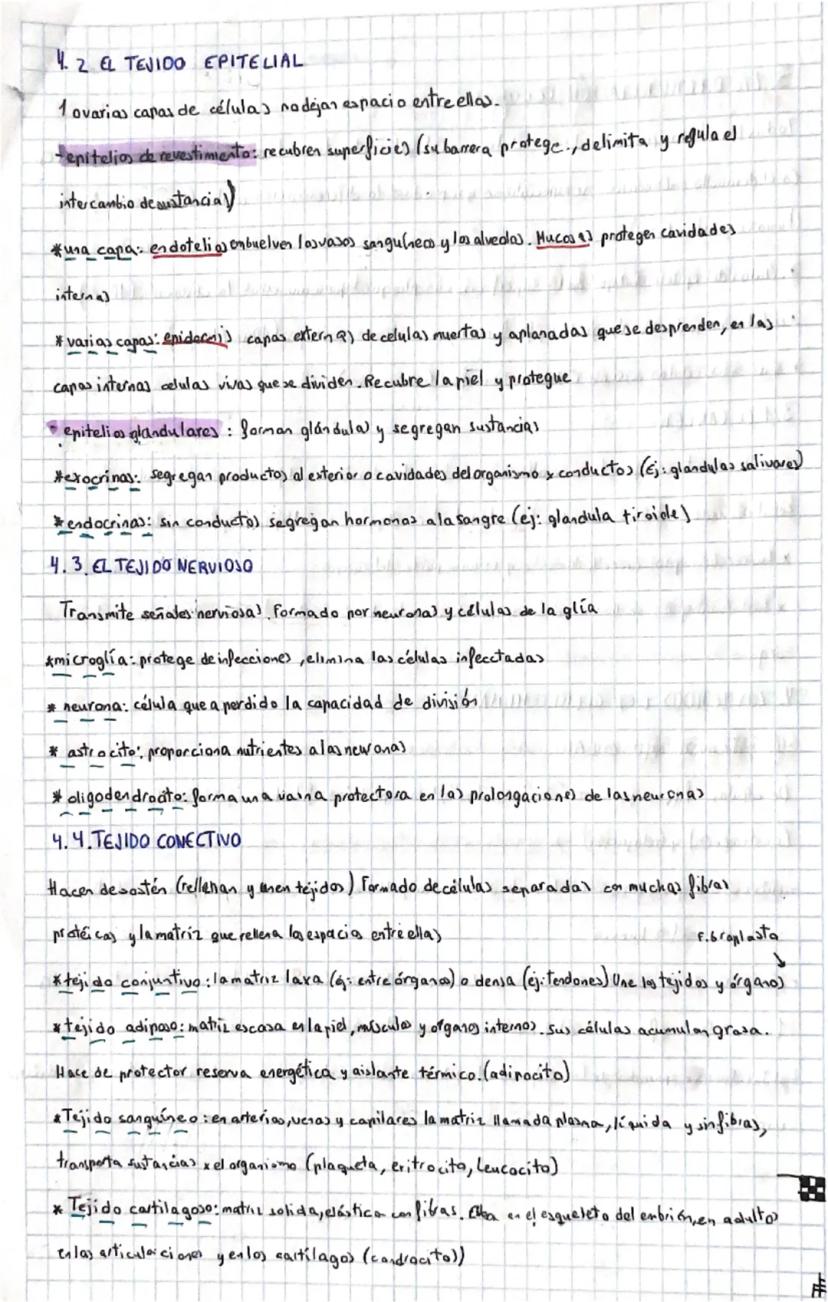 4. 2 EL TEJIDO EPITELIAL
1 o varias capas de células no dejan espacio entre ellas.
- epitelios de revestimiento: recubren superficies (su barrera protege., delimita y regula el
intercambio de sustancia)
* una capa: endotelios enbuelven los vasos sanguíneos y los alveolos. Mucosas protegen cavidades
internas
* varias capas: epidermis capas externas de celulas muertas y aplanadas que se desprenden, en las
capas internas celulas vivas que se dividen. Recubre la piel y protegue
- epitelios glandulares : forman glándulas y segregan sustancias
*exocrinas: segregan productos al exterior o cavidades del organismo x conductos (Ej: glandulas salivares)
*endocrinas: sin conductos segregan hormonas a la sangre (ej: glandula tiroide)
4. 3. EL TEJIDO NERVIOSO
Transmite señales nerviosas. Formado por neuronas y células de la glía
*microglía: protege de infecciones, elimina las células infecctadas
* neurona: célula que a perdido la capacidad de división
* astrocito: proporciona nutrientes a las neuronas
* oligodendrocito: forma una vaina protectora en las prolongaciones de las neuronas
4. 4. TEJIDO CONECTIVO
Hacen de sostén (rellenan y unen tejidos) Formado de células separadas con muchas fibras
protéicas y la matriz que rellena los espacios entre ellas
Fibroplasto
*tejido conjuntivo: la matriz laxa (ej: entre órganos) o densa (ej: tendones) Une los tejidos y órganos
*tejido adiposo: matriz escasa en la piel, músculos y organos internos. Sus células acumulan grasa.
Hace de protector reserva energética y aislante térmico. (adipocito)
*Tejido sanguíneo: en arterias, venas y capilares la matriz llamada plasma, líquida y sin fibras,
transporta sustancias x el organismo (plaqueta, eritrocito, leucocito)
* Tejido cartilagoso: matriz solida, elástica con fibras. Esta en el esqueleto del enbrión, en adultos
en las articulaciones y en los cartílagos (condrocito))